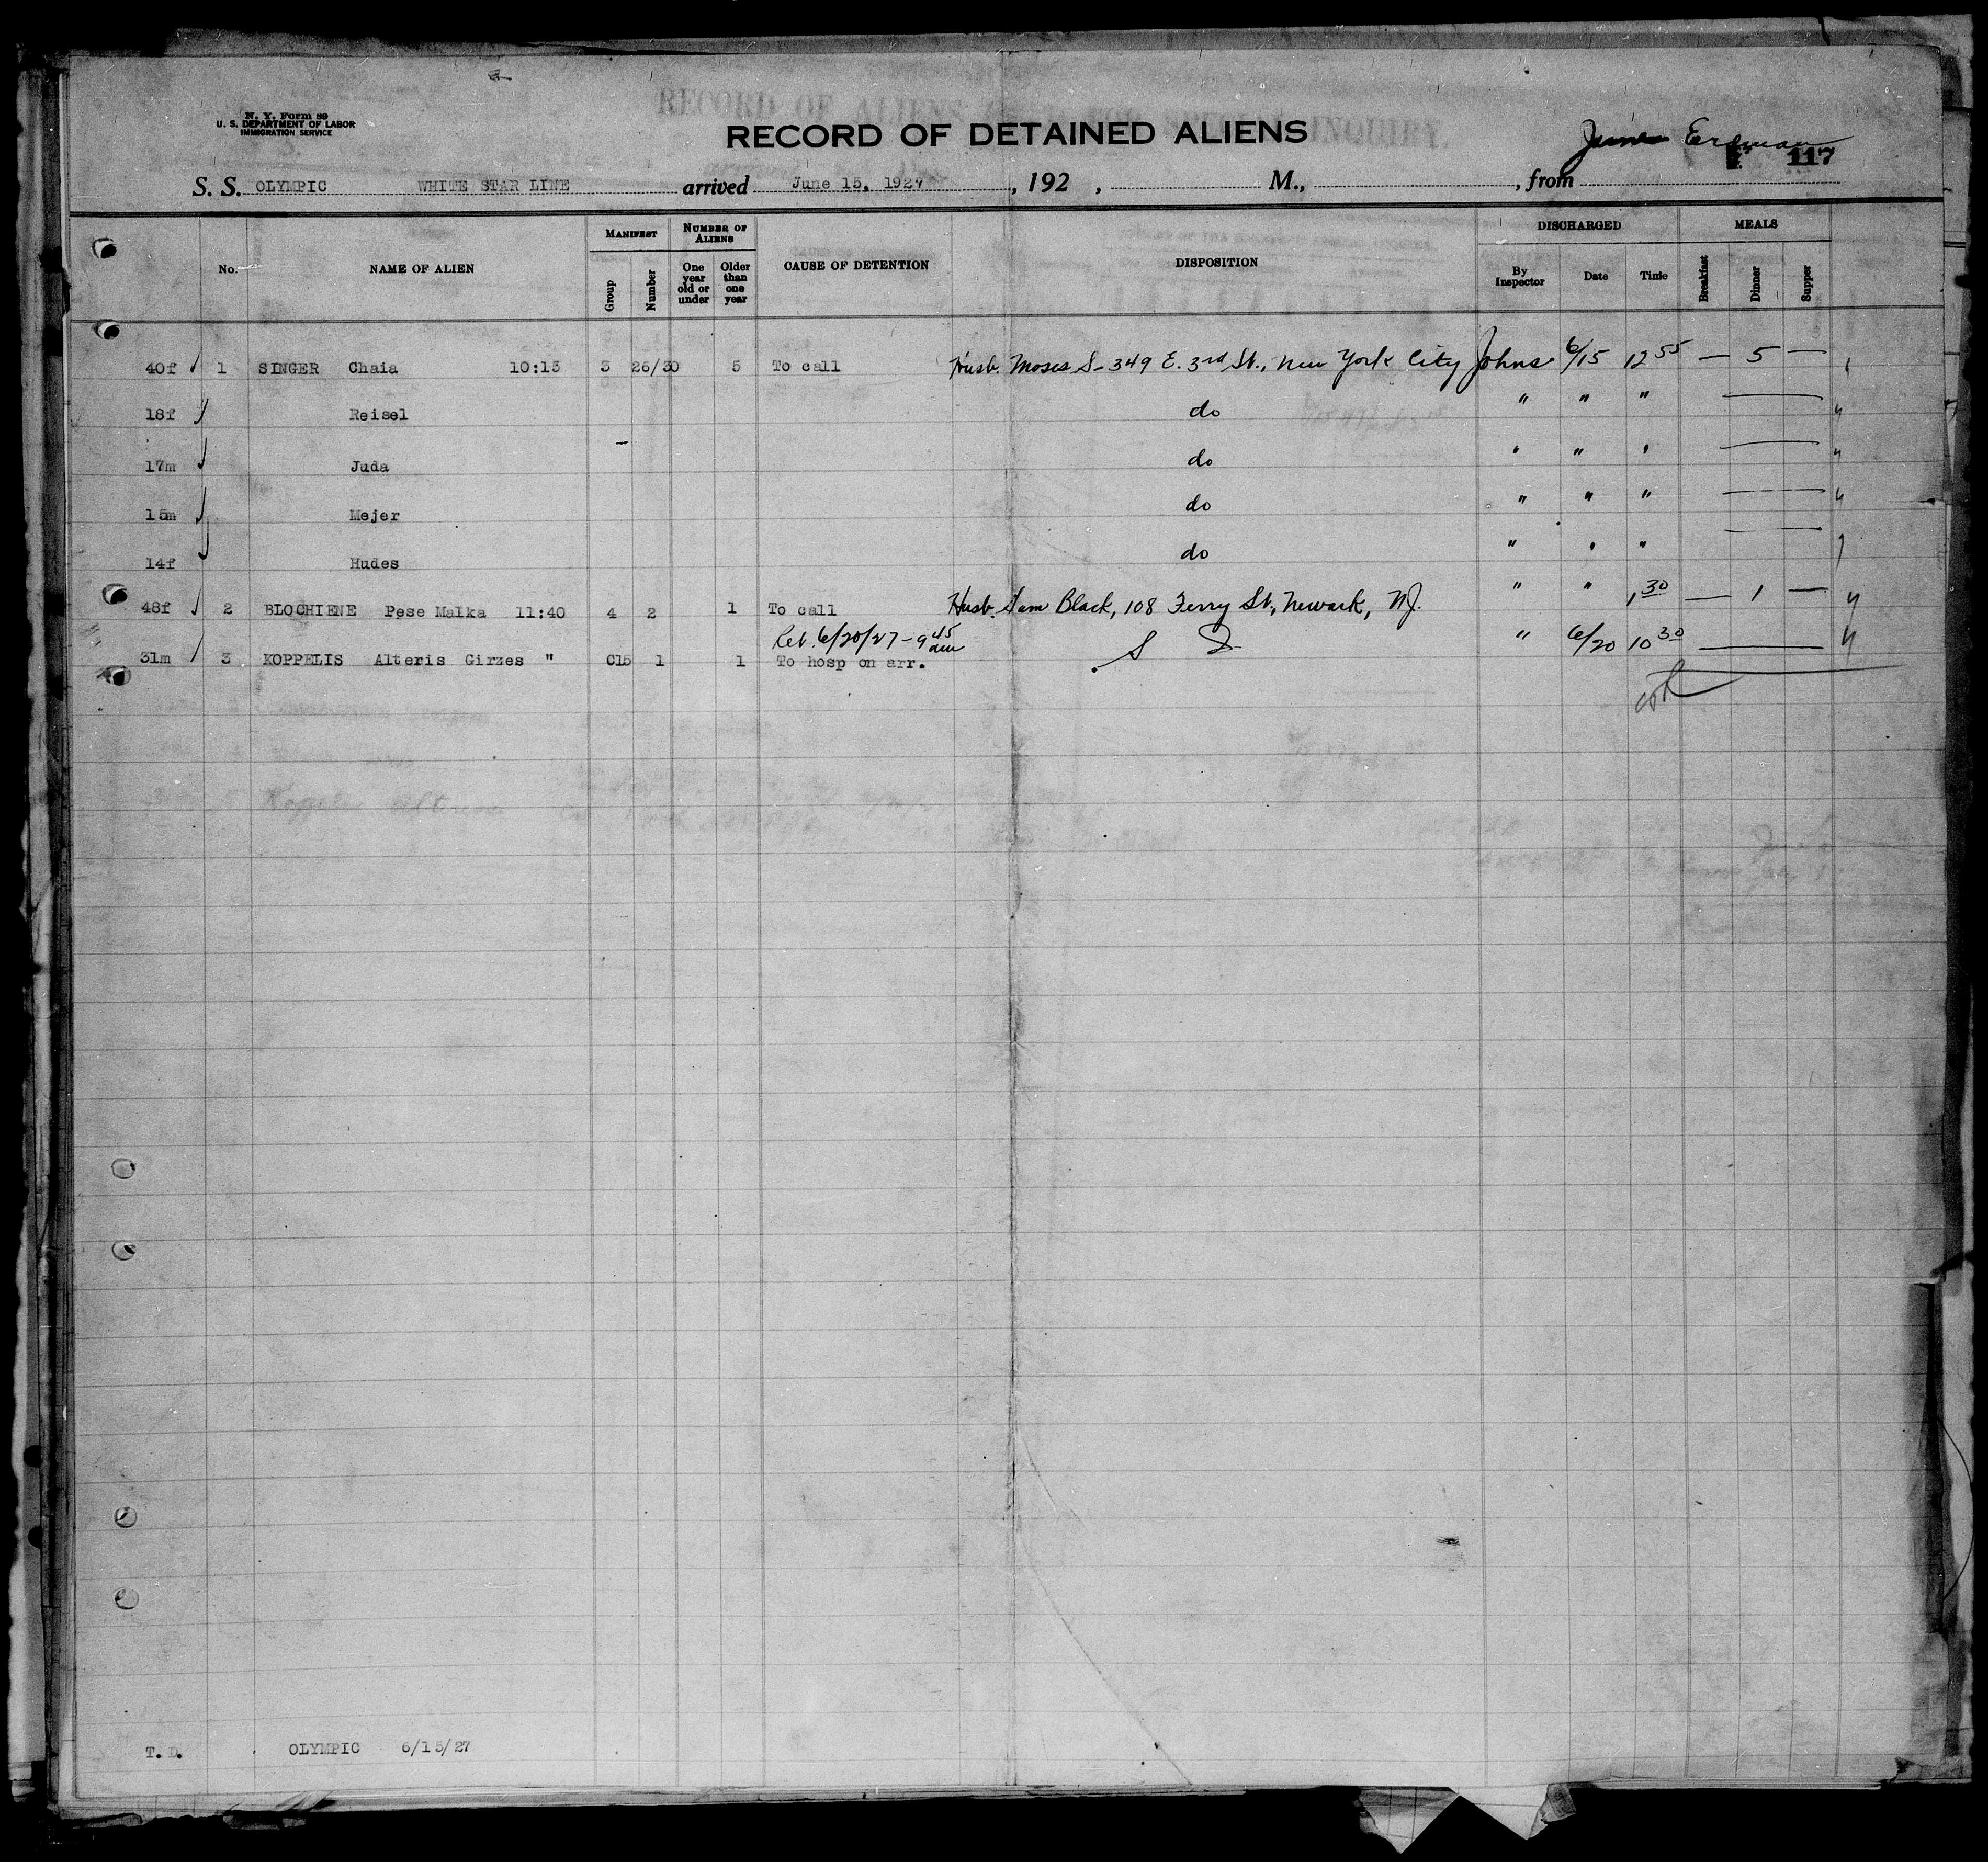 N. Y. Form 89
U. S. DEPARTMENT OF LABOR
IMMIGRATION SERVICE
RECORD OF DETAINED ALIENS
117
S. S. OLYMPIC WHITE STAR LINE arrived June 15, 1927, 192 , M., , from
No. NAME OF ALIEN MANIFEST Group Number NUMBER OF ALIENS One year old or under Older than one year CAUSE OF DETENTION DISPOSITION DISCHARGED By Inspector Date Time MEALS Breakfast Dinner Supper
40f 1 SINGER Chaia 10:15 3 26/30 5 To call Husb. Moses S- 349 E. 3rd St., New York City Johns 6/15 12 55 — 5 —
18f Reisel do " " "
17m Juda do " " "
15m Mejer do " " "
14f Hudes do " " "
48f 2 BLOCHIENE Pese Malka 11:40 4 2 1 To call Husb. Sam Black, 108 Ferry St., Newark, NJ. " " 1 30 — 1 —
Ret. 6/20/27 - 9 45 am
31m 3 KOPPELIS Alteris Girzes " C15 1 1 To hosp on arr. S I " 6/20 10 30
T. D. OLYMPIC 6/15/27